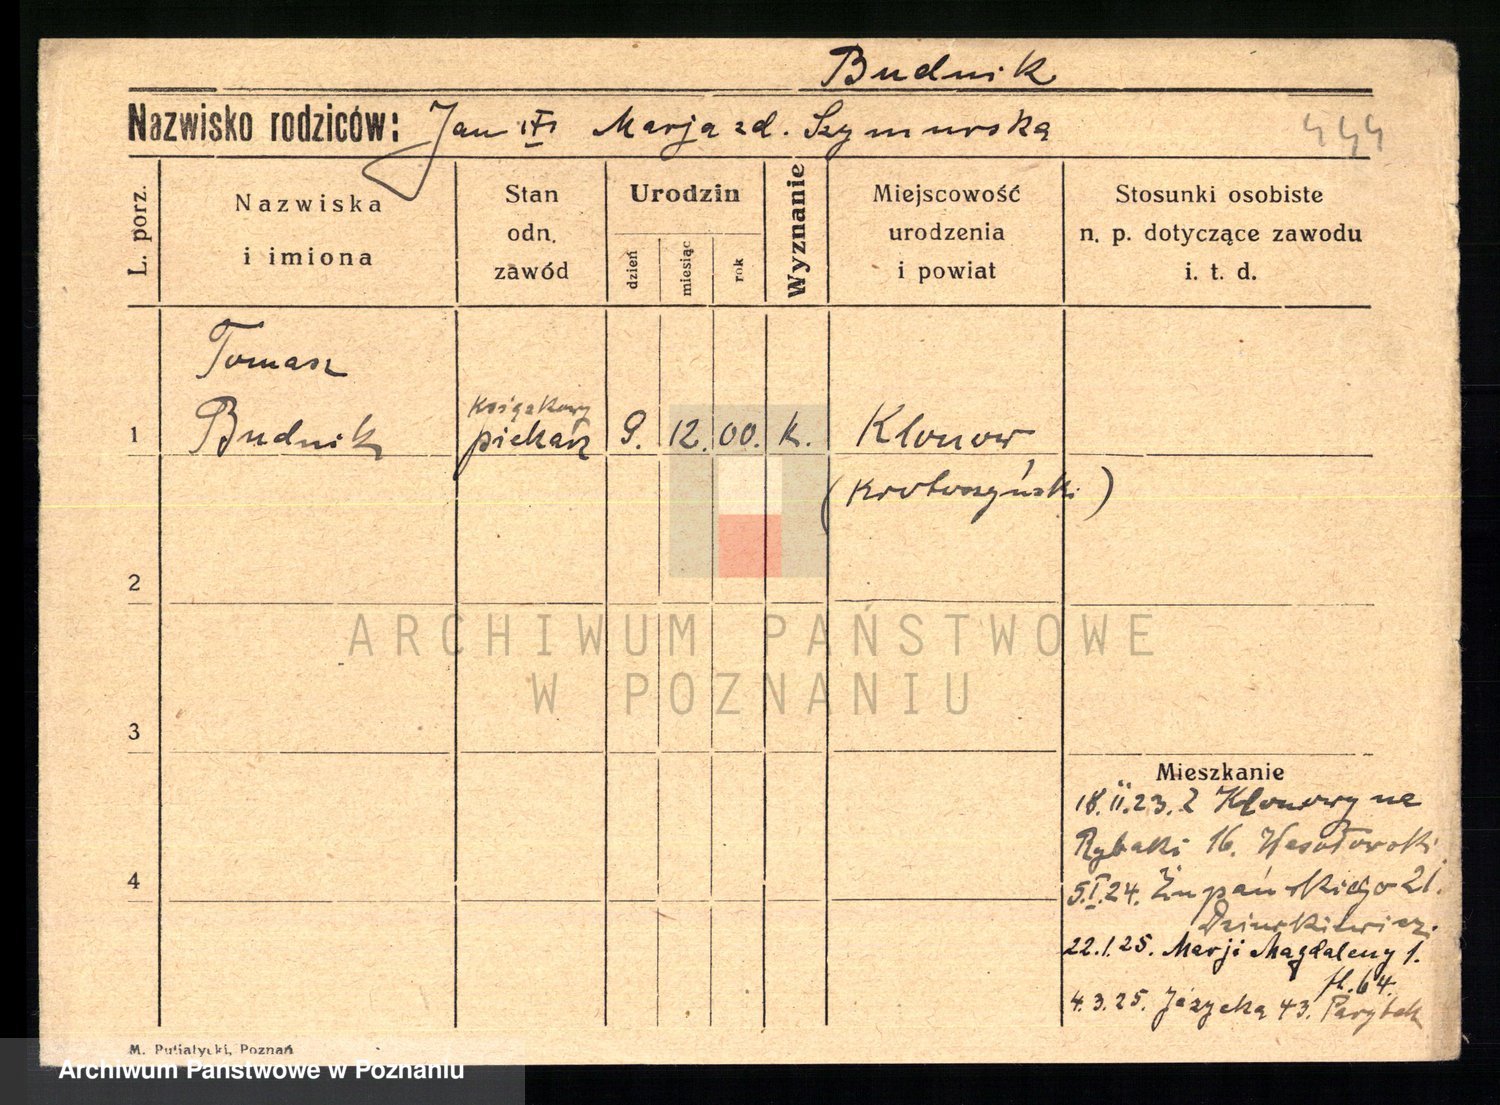 Budnik
Nazwisko rodziców: Jan Marja zd. Szymurska
444
L. porz.
Nazwiska
i imiona
Stan
odn.
zawód
Urodzin
dzień
miesiąc
rok
Wyznanie
Miejscowość
urodzenia
i powiat
Stosunki osobiste
n. p. dotyczące zawodu
i. t. d.
Tomasz
1 Budnik
piekarz
9. 12. 00. k. Klonow
(krotoszyński)
2
3
4
Mieszkanie
18.II.23. Z Klonowy na
Rybaki 16. Wesołowski
5.I.24. Żupańskiego 21.
22.1.25. Marji Magdaleny 1.
4.3.25. 43. Parybek
M. Putiatycki, Poznań
ARCHIWUM PAŃSTWOWE
W POZNANIU
Archiwum Państwowe w Poznaniu